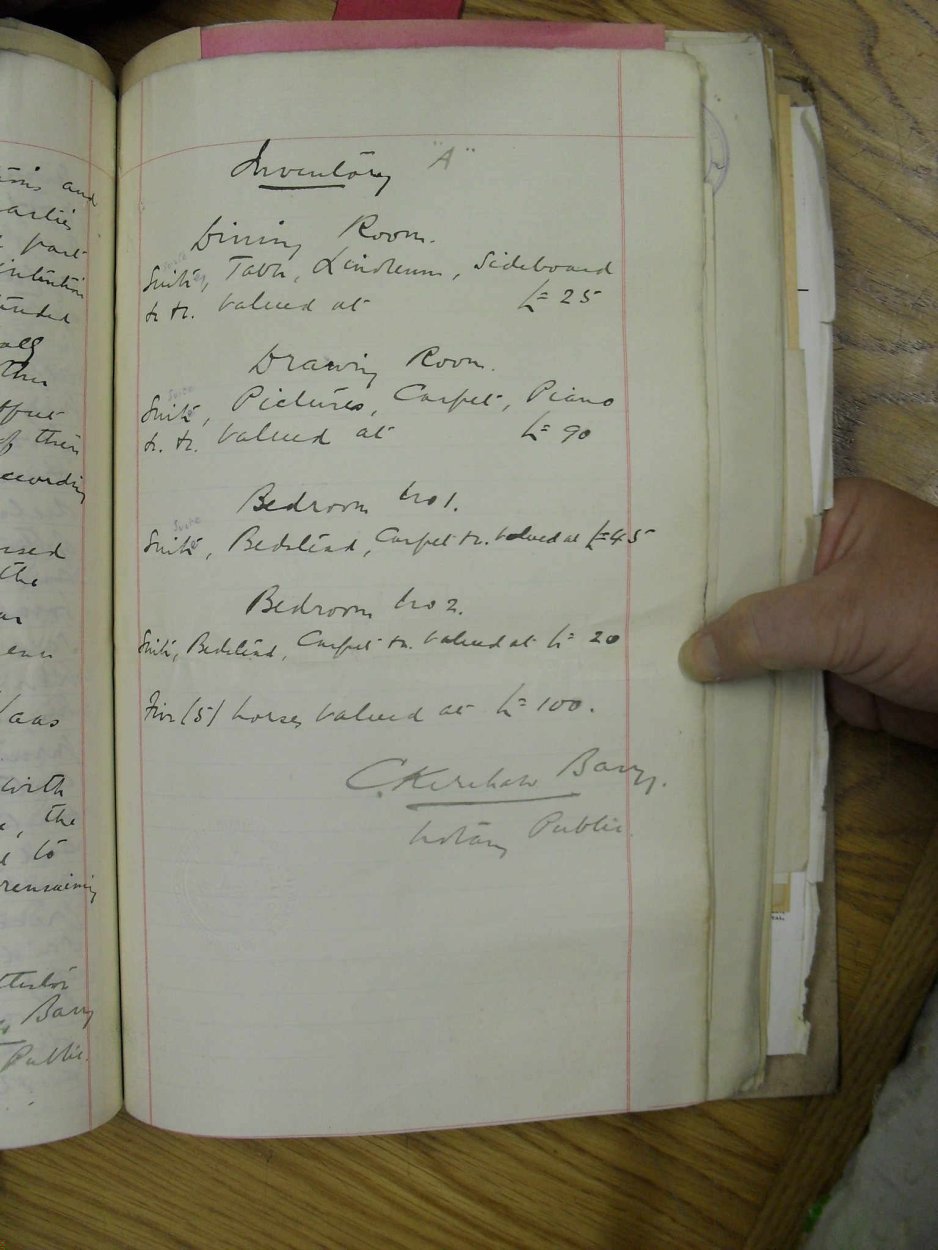 Inventory "A"
Dining Room.
Suite, Table, Linoleum, Sideboard
&c &c. valued at £25
Drawing Room.
Suite
Suite, Pictures, Carpet, Piano
&c. &c. valued at £90
Bedroom No 1.
Suite
Suite, Bedstead, Carpet &c. valued at £45
Bedroom No 2.
Suite, Bedstead, Carpet &c. valued at £20
Five (5) horses valued at £100.
C. Kershaw Barry.
Notary Public.
and
parties
part
intention
the
of their
according
the
with
the
to
remaining
Barry
Public.